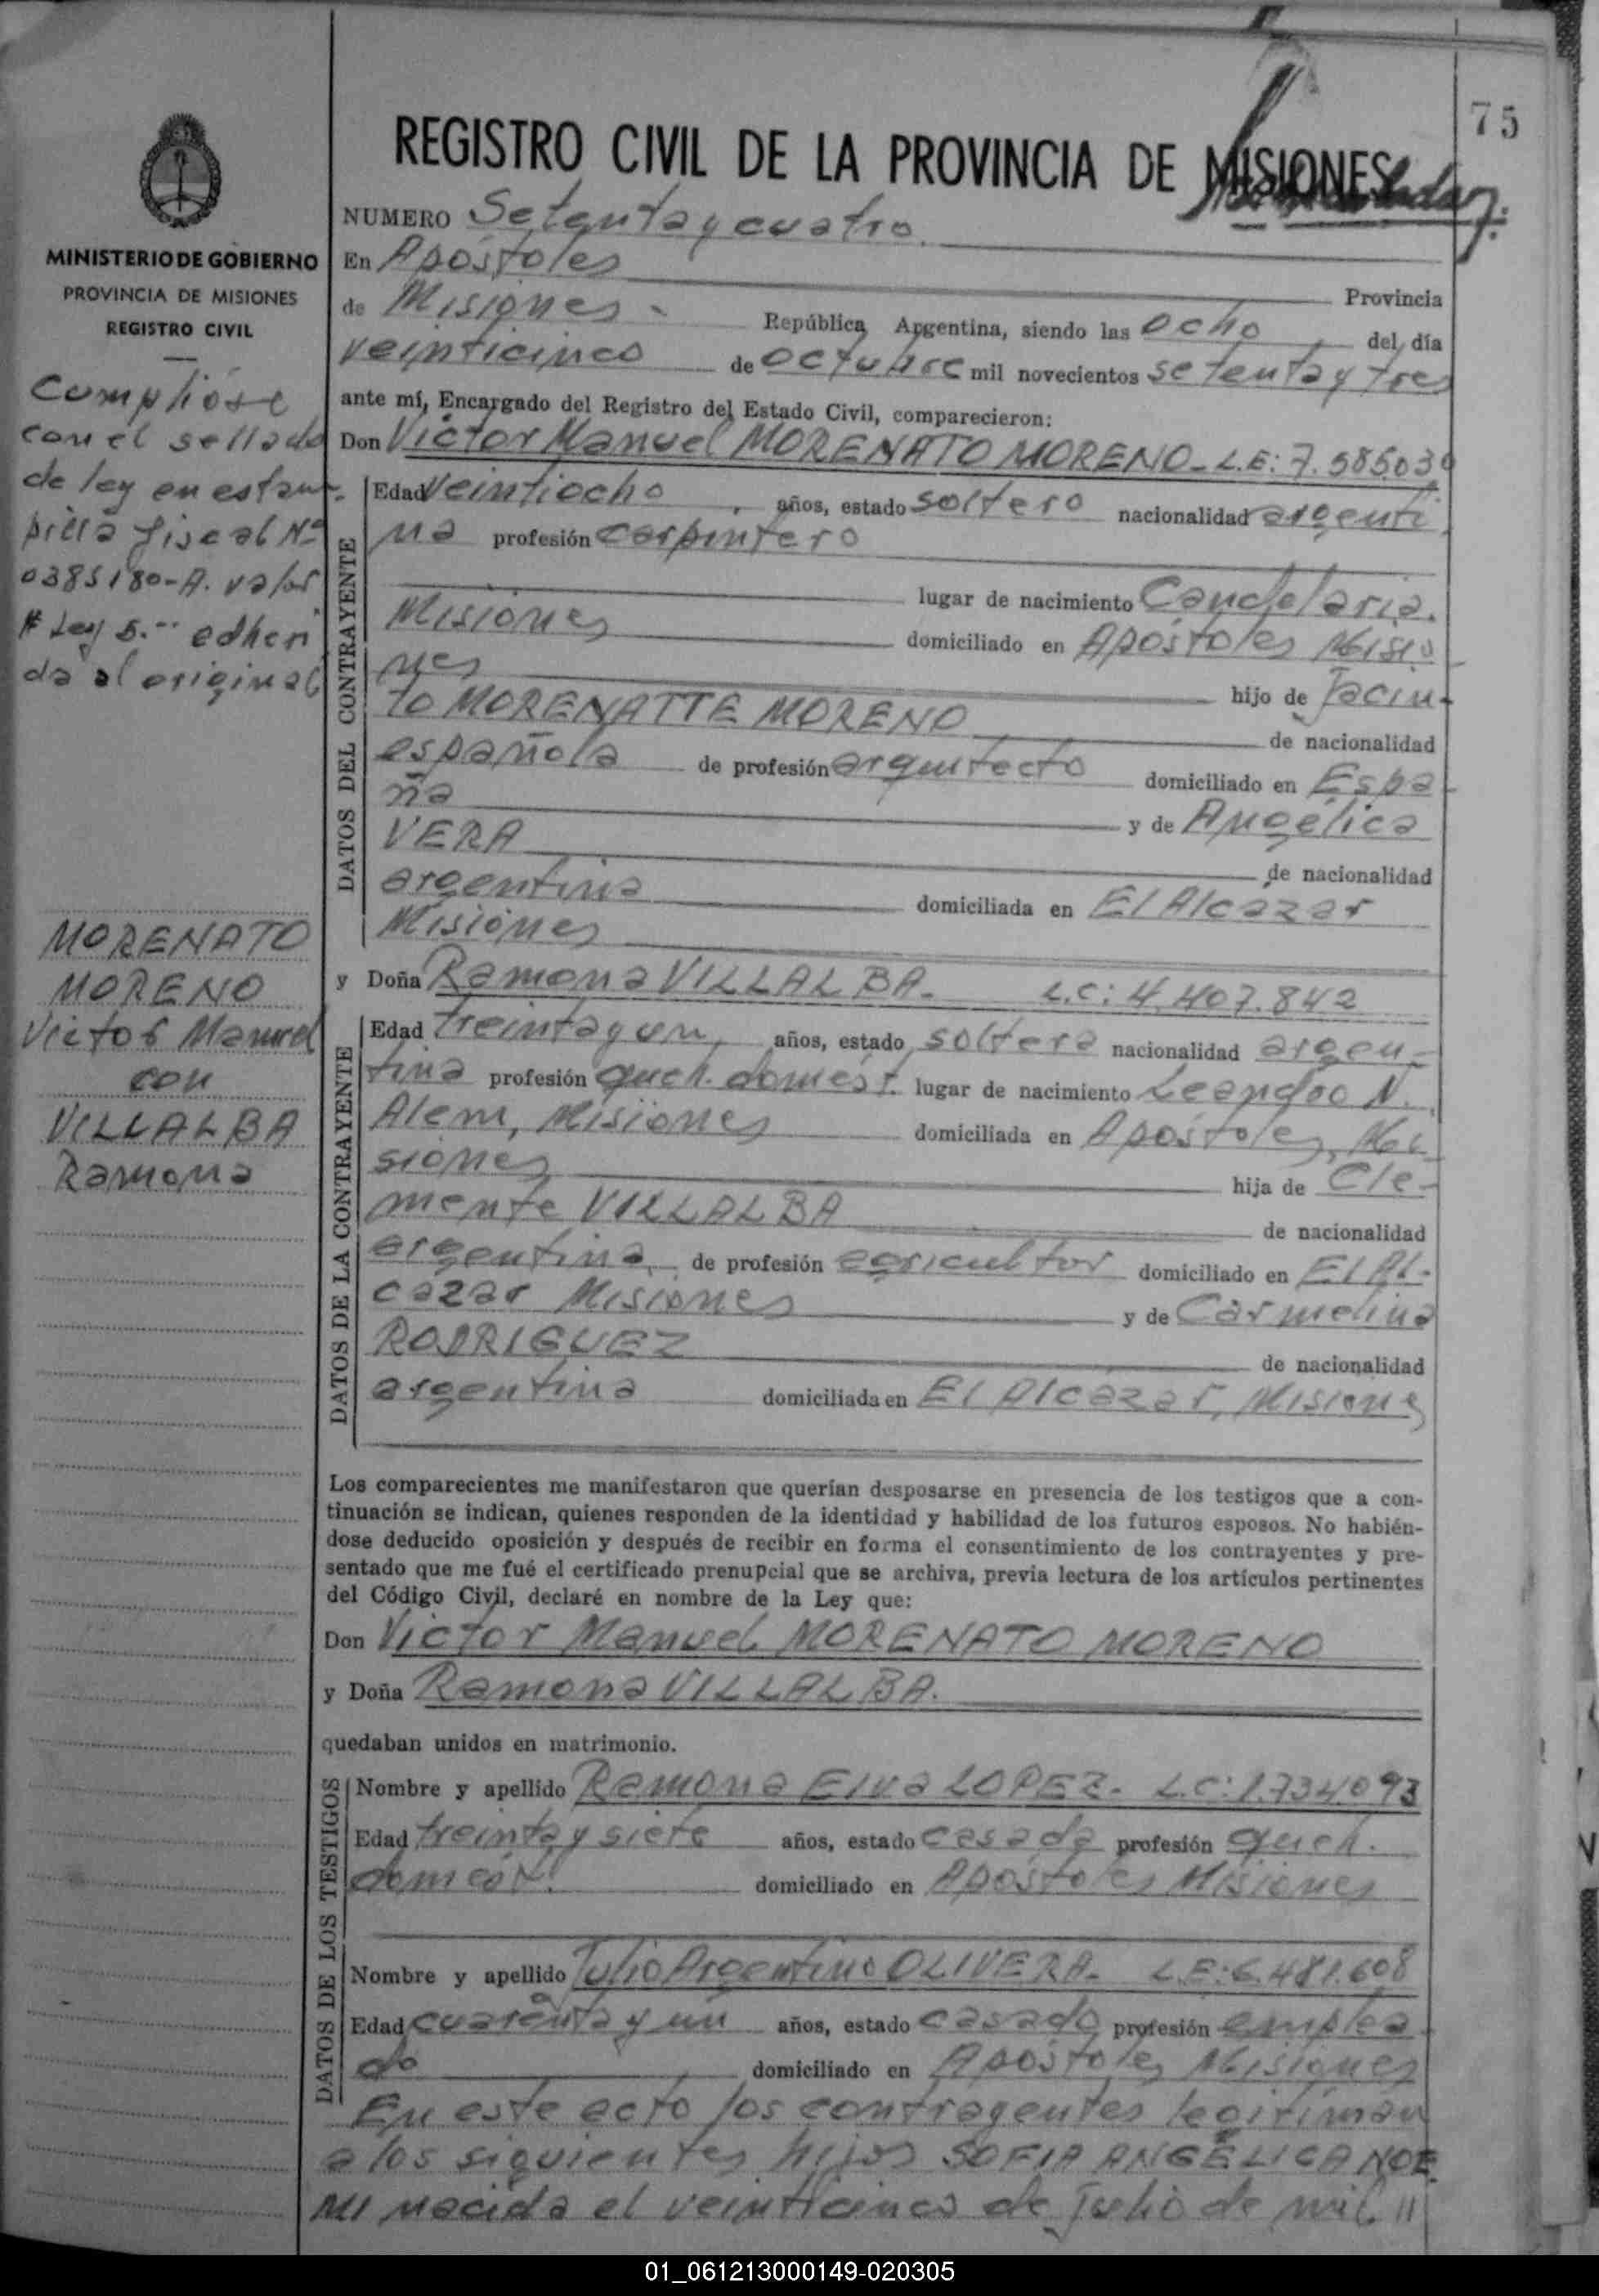 75
REGISTRO CIVIL DE LA PROVINCIA DE MISIONES
MINISTERIO DE GOBIERNO
PROVINCIA DE MISIONES
REGISTRO CIVIL
Cumplióse
con el sellado
de ley en estam-
pilla fiscal Nº
0385180-A. valor
$ Ley 5.-- adheri
da al original
MORENATO
MORENO
Victor Manuel
con
VILLALBA
Ramona
NUMERO Setenta y cuatro.
En Apóstoles Provincia
de Misiones - República Argentina, siendo las ocho del día
veinticinco de octubre mil novecientos setenta y tres
ante mí, Encargado del Registro del Estado Civil, comparecieron:
Don Víctor Manuel MORENATO MORENO - L.E: 7.585.030
DATOS DEL CONTRAYENTE
Edad veintiocho, años, estado soltero nacionalidad argenti
na profesión carpintero
lugar de nacimiento Candelaria.
Misiones domiciliado en Apóstoles Misio
nes hijo de Jacin-
to MORENATTE MORENO de nacionalidad
española de profesión arquitecto domiciliado en Espa-
ña y de Angélica
VERA de nacionalidad
argentina domiciliada en El Alcazar
Misiones
y Doña Ramona VILLALBA. L.C: 4.407.842
DATOS DE LA CONTRAYENTE
Edad treinta y un, años, estado soltera nacionalidad argen-
tina profesión queh. domést. lugar de nacimiento Leandro N.
Alem, Misiones domiciliada en Apóstoles, Mi-
siones hija de Cle-
mente VILLALBA de nacionalidad
argentina, de profesión agricultor domiciliado en El Al-
cázar Misiones y de Carmelina
RODRIGUEZ de nacionalidad
argentina domiciliada en El Alcázar, Misiones
Los comparecientes me manifestaron que querían desposarse en presencia de los testigos que a con-
tinuación se indican, quienes responden de la identidad y habilidad de los futuros esposos. No habién-
dose deducido oposición y después de recibir en forma el consentimiento de los contrayentes y pre-
sentado que me fué el certificado prenupcial que se archiva, previa lectura de los artículos pertinentes
del Código Civil, declaré en nombre de la Ley que:
Don Victor Manuel MORENATO MORENO
y Doña Ramona VILLALBA.
quedaban unidos en matrimonio.
DATOS DE LOS TESTIGOS
Nombre y apellido Ramona Elva LOPEZ - L.C: 1.734.093
Edad treinta y siete años, estado casada profesión queh.
domést. domiciliado en Apóstoles Misiones
Nombre y apellido Julio Argentino OLIVERA - L.E: 6.481.608
Edad cuarenta y un años, estado casado profesión emplea-
do domiciliado en Apóstoles Misiones
En este acto los contrayentes legitiman
a los siguientes hijos SOFIA ANGÉLICA NOE
MI nacida el veinticinco de julio de mil //
01_061213000149-020305